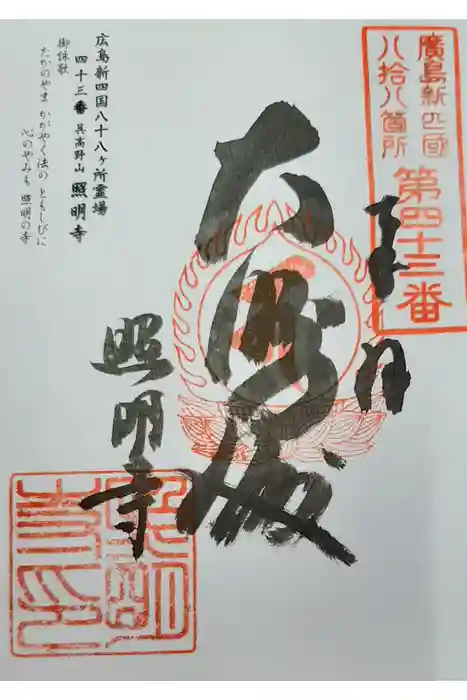 廣島新四國
八拾八箇所
第四十三番
大師殿
照明寺
広島新四国八十八ヶ所霊場
四十三番 呉高野山 照明寺
御詠歌
たかのやま かがやく法の ともしびに
心のやみも 照明の寺
照明寺印